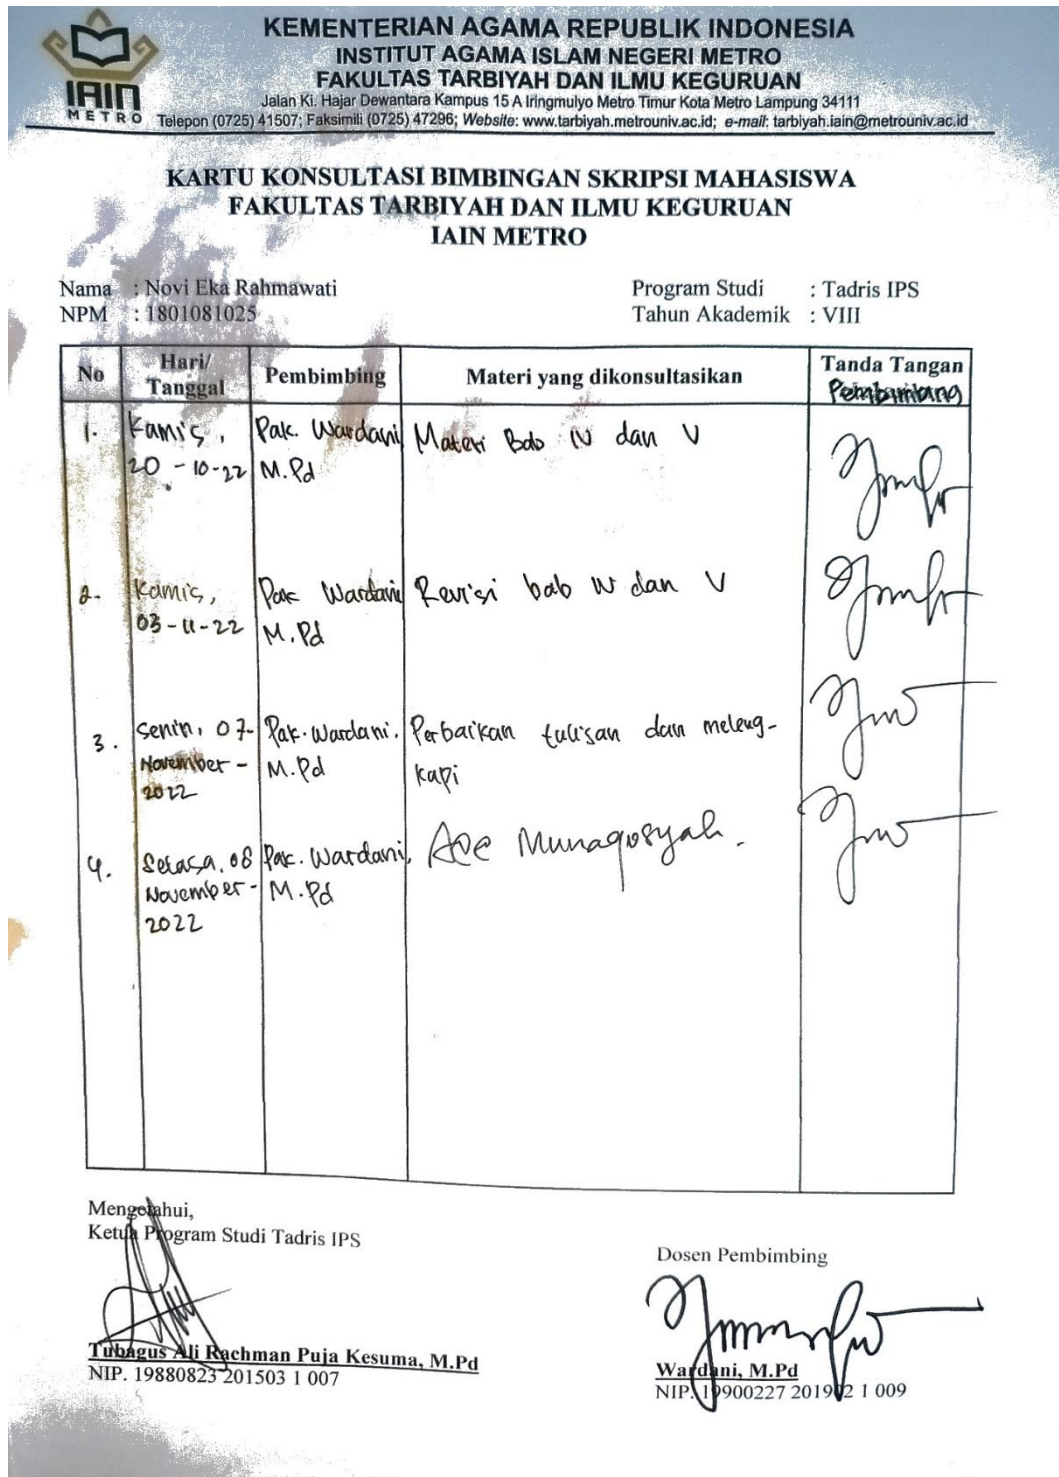 IAIN
METRO
KEMENTERIAN AGAMA REPUBLIK INDONESIA
INSTITUT AGAMA ISLAM NEGERI METRO
FAKULTAS TARBIYAH DAN ILMU KEGURUAN
Jalan Ki. Hajar Dewantara Kampus 15 A Iringmulyo Metro Timur Kota Metro Lampung 34111
Telepon (0725) 41507; Faksimili (0725) 47296; Website: www.tarbiyah.metrouniv.ac.id; e-mail: tarbiyah.iain@metrouniv.ac.id
KARTU KONSULTASI BIMBINGAN SKRIPSI MAHASISWA
FAKULTAS TARBIYAH DAN ILMU KEGURUAN
IAIN METRO
Nama : Novi Eka Rahmawati
NPM : 1801081025
Program Studi : Tadris IPS
Tahun Akademik : VIII
No
Hari/
Tanggal
Pembimbing
Materi yang dikonsultasikan
Tanda Tangan
Pembimbing
1. Kamis, Pak. Wardani Materi Bab IV dan V
20-10-22 M.Pd
2. Kamis, Pak Wardani Revisi bab IV dan V
03-11-22 M.Pd
3. Senin, 07- Pak. Wardani. Perbaikan tulisan dan meleng-
November- M.Pd kapi
2022
4. Selasa, 08 Pak. Wardani, Acc Munaqosyah.
November- M.Pd
2022
Mengetahui,
Ketua Program Studi Tadris IPS
Tubagus Ali Rachman Puja Kesuma, M.Pd
NIP. 19880823 201503 1 007
Dosen Pembimbing
Wardani, M.Pd
NIP. 19900227 201902 1 009